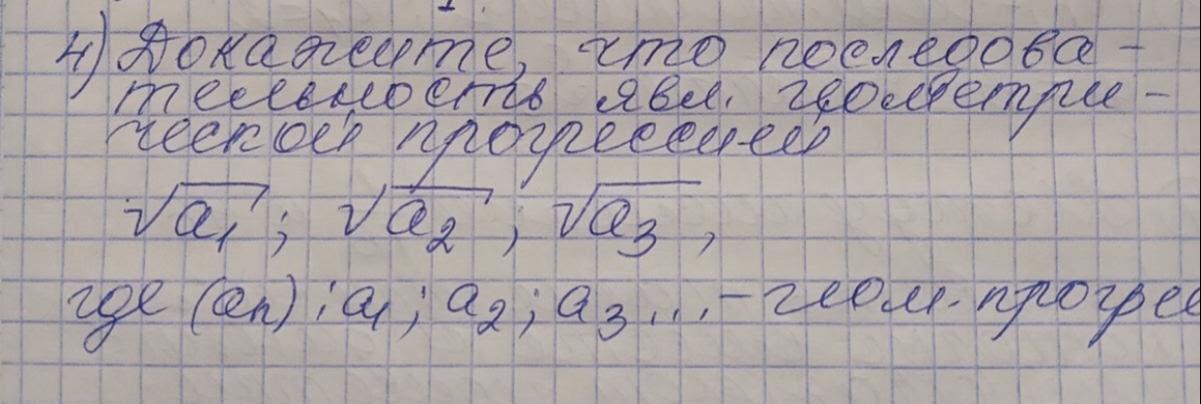 4) Докажите, что последова-
тельность явл. геометри-
ческой прогрессией
√a₁; √a₂; √a₃,
где (aₙ): a₁; a₂; a₃... - геом. прогрес